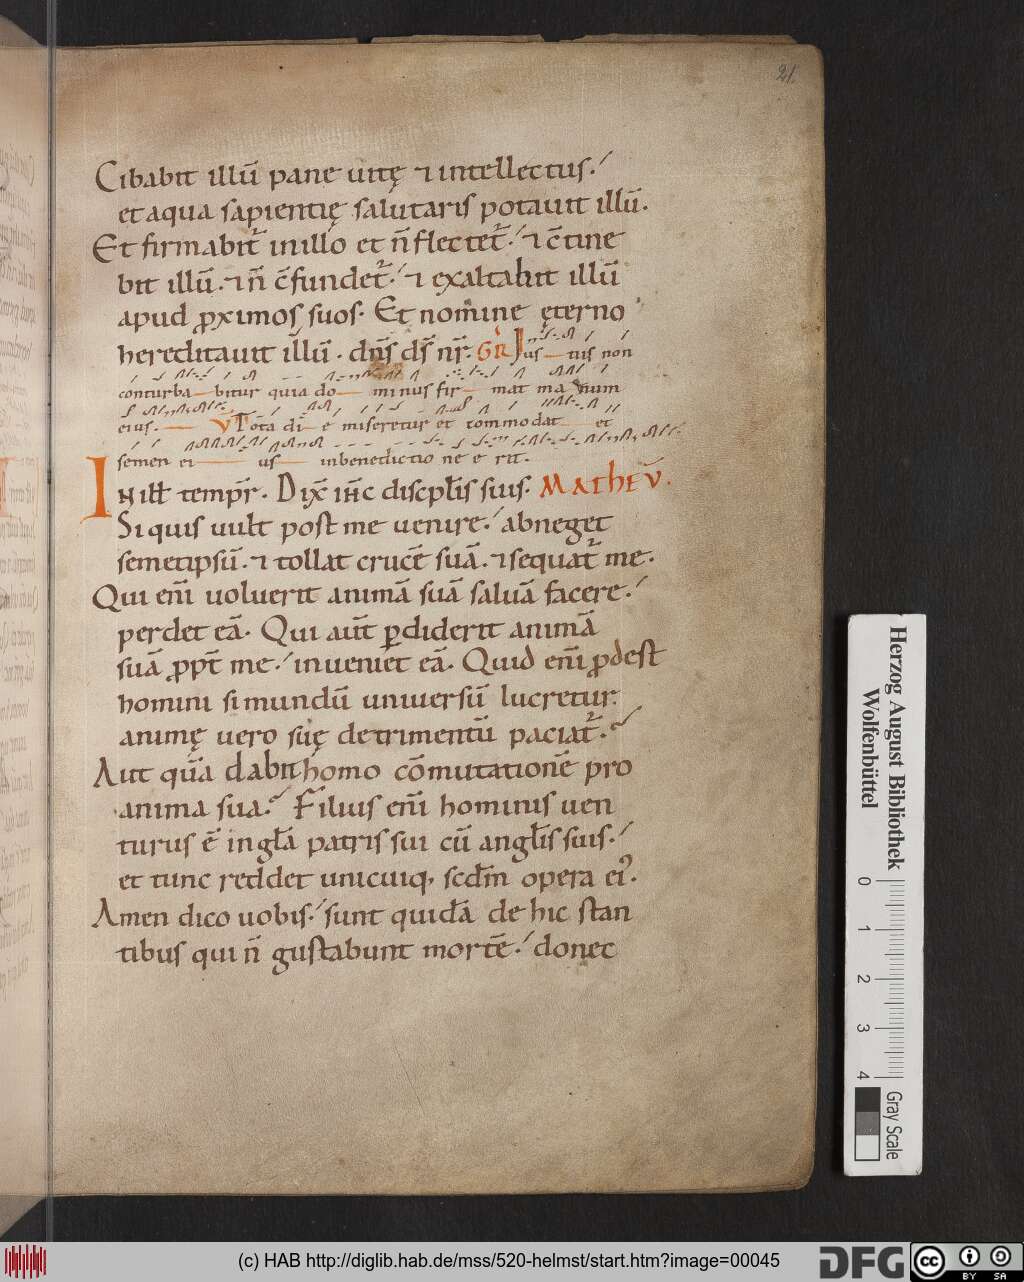 21.
Cibabit illũ pane uitę ⁊ intellectus.
et aqua sapientię salutaris potauit illũ.
Et firmabit᷑ in illo et ñ flectet᷑. ⁊ c̃tine
bit illũ. ⁊ ñ c̃fundet᷑. ⁊ exaltabit illũ
apud ꝓximos suos. Et nomine ęterno
hereditauit illũ. dñs ds̃ nr̃. GR̃ Ius tus non
conturba bitur quia do minus fir mat ma num
eius. V Tota di e miseretur et commodat et
semen ei us in benedictio ne e rit.
In ill̃ tempr̃. Dix̃ ih̃c discpl̃is suis. MATHEV̄.
Si quis uult post me uenire. abneget
semetipsũ. ⁊ tollat crucẽ suã. ⁊ sequat᷑ me.
Qui eñi uoluerit animã suã saluã facere.
perdet eã. Qui aut̃ ꝑdiderit animã
suã ꝓpt̃ me. inueniet eã. Quid eñi ꝓdest
homini si mundũ uniuersũ lucretur.
animę uero suę detrimentũ paciat᷑.
Aut quã dabit homo cõmutationẽ pro
anima sua. Filius eñi hominis uen
turus ẽ in gl̃a patris sui cũ angl̃is suis.
et tunc reddet unicuiq, scdm̃ opera ei᾿.
Amen dico uobis. sunt quidã de hic stan
tibus qui ñ gustabunt mortẽ. donec
Herzog August Bibliothek
Wolfenbüttel
0 1 2 3 4
Gray Scale
(c) HAB http://diglib.hab.de/mss/520-helmst/start.htm?image=00045
DFG
cc BY SA